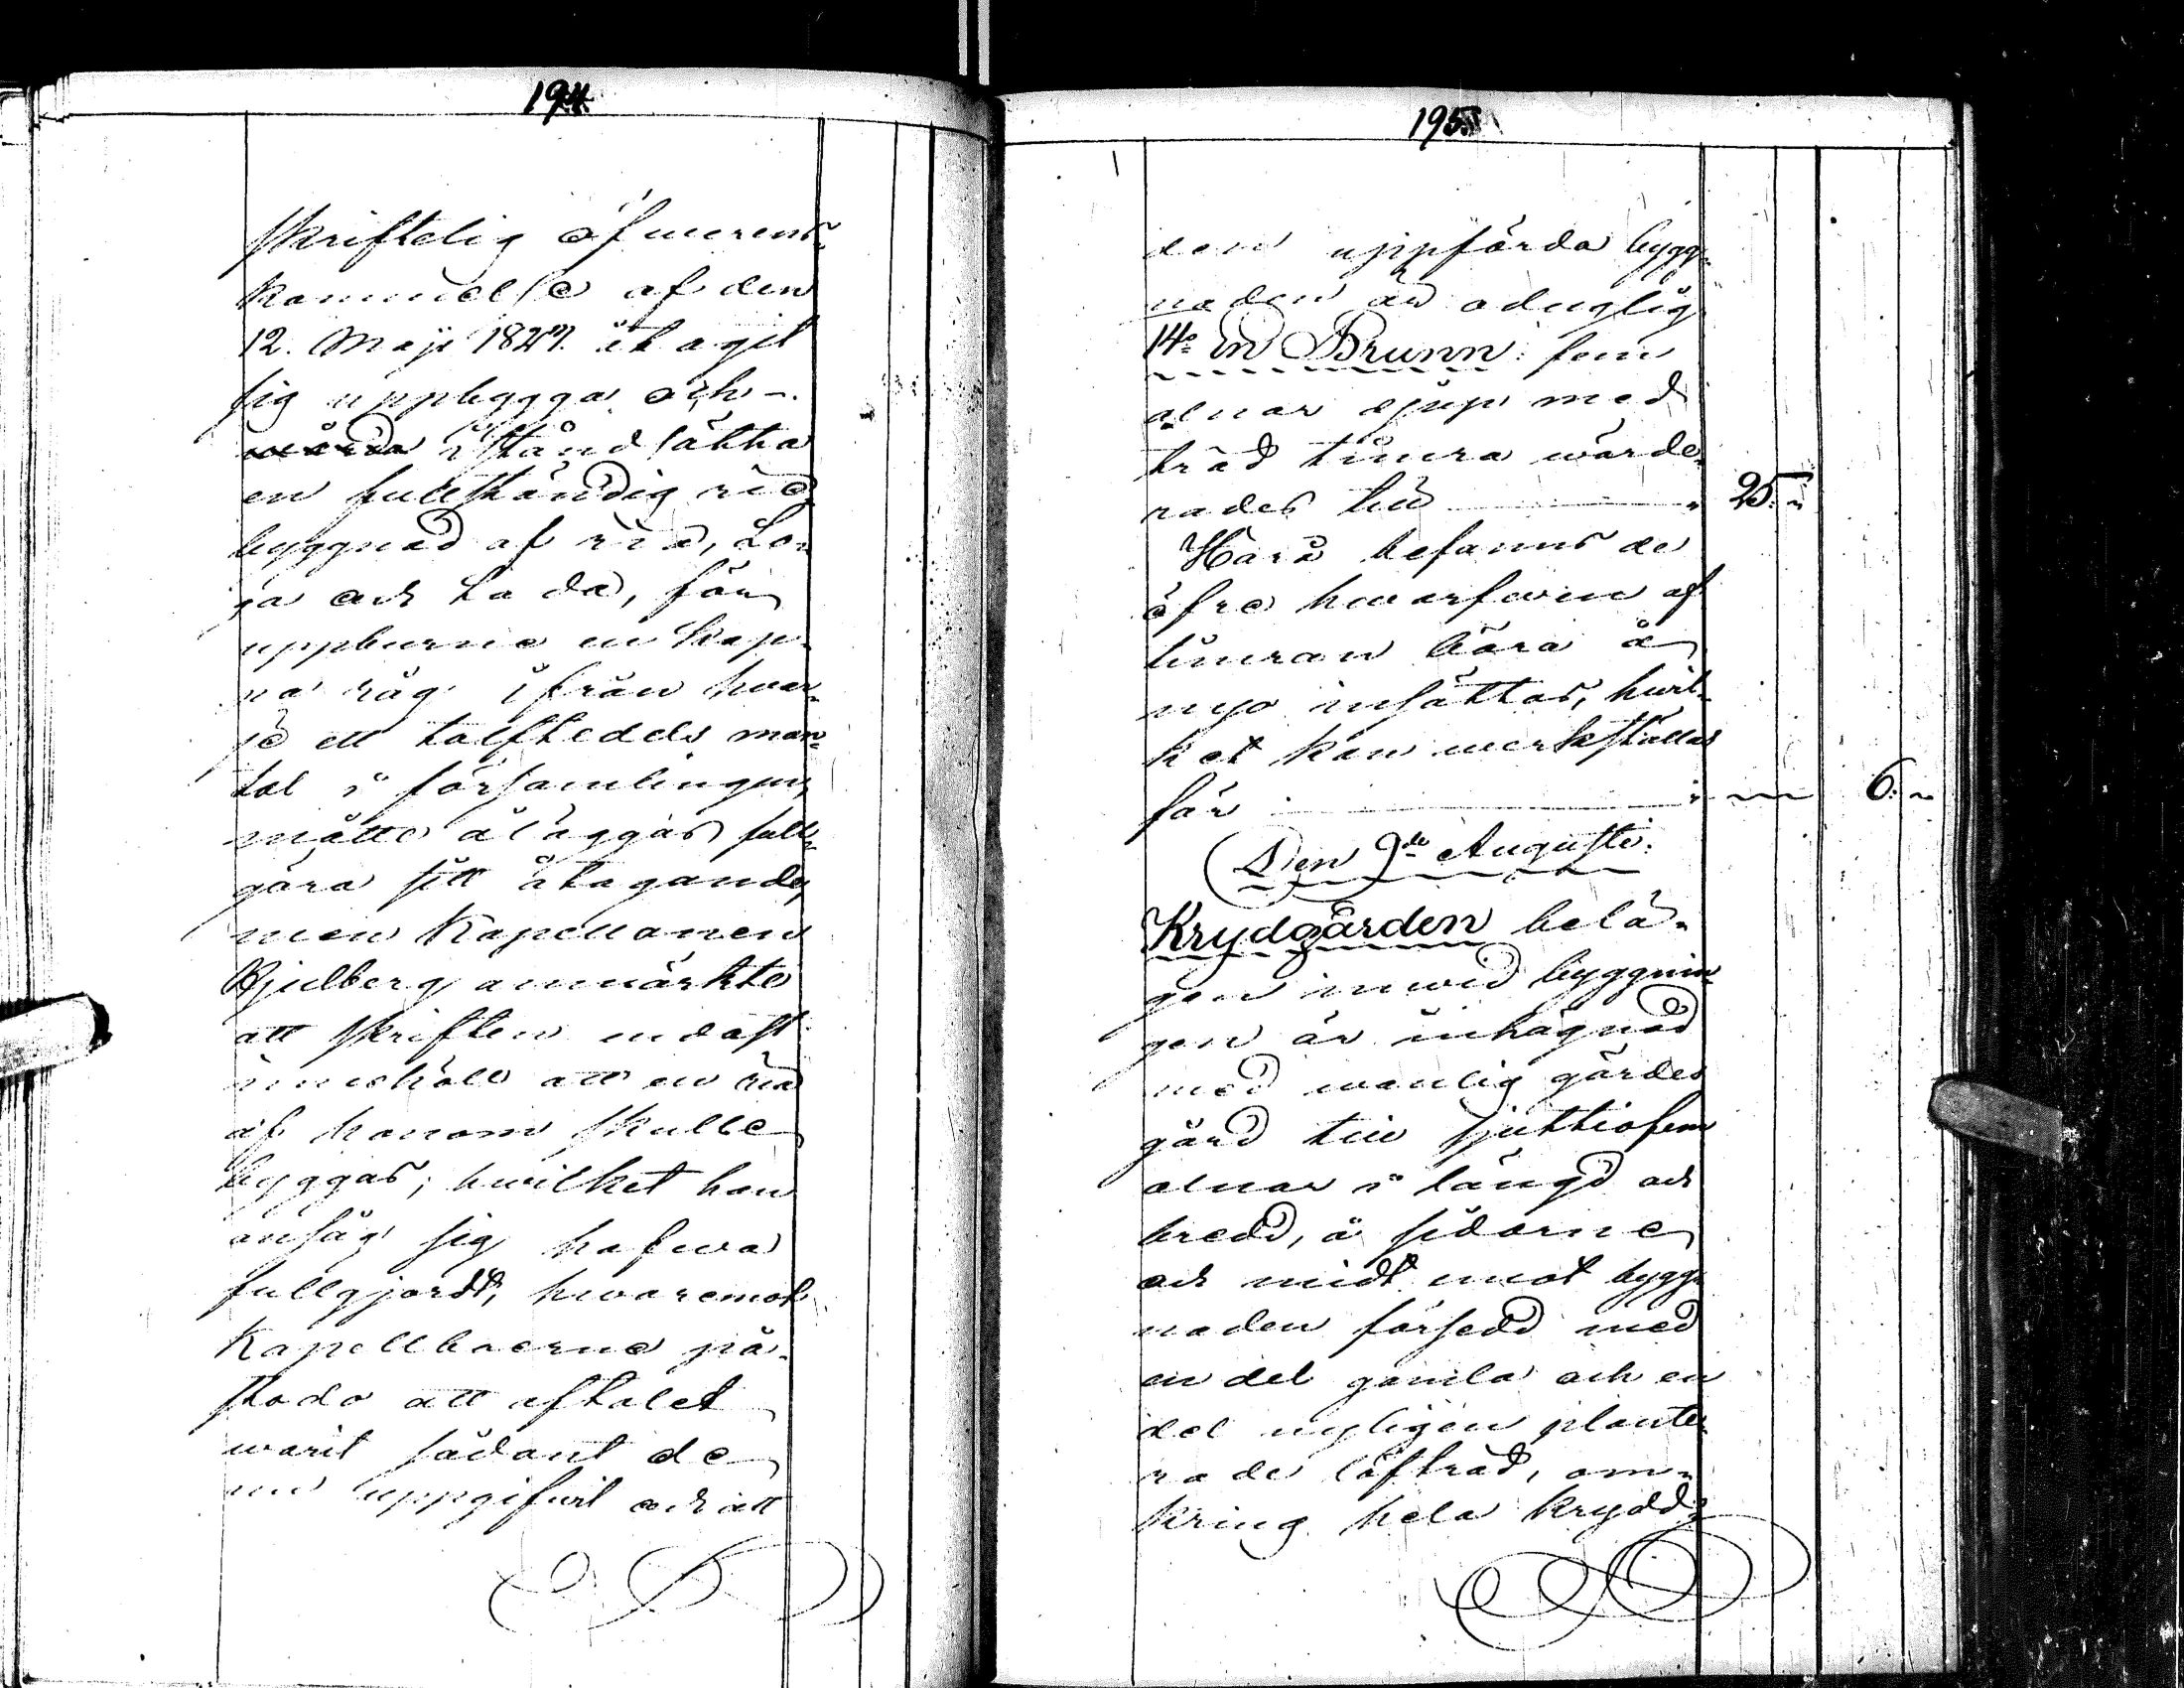 194.
skriftelig öfwerens-
kommelse af den
12. Maji 1827. åtagit
sig uppbygga och -
wårda i stånd sätta
en fullständig rie-
byggnad af ria, Lo-
ga och Lada, för
uppburne en kap-
na råg ifrån hwar-
je ett tolftedels man-
tal i församlingen,
måtte åläggas full-
göra sitt åtagande,
men Kapellanen
Kjulberg anmärkte
att skriften endast
innehåll att en ria
af honom skulle
byggas; hwilket han
ansåg sig hafwa
fullgjordt, hwaremot
Kapellboerne på-
stodo att aftalet
warit sådant de
nu uppgifwit och att
195.
den uppförda bygg-
naden är oduglig
14:o En Brunn: fem
alnar djup med
träd timra wärde-
rades till " 25. "
Härå befanns de
öfre hwarfwen af
timran böra å
nyo insättas, hwil-
ket kan werkställas
för " 6. "
Den 9de Augusti.
Krydgården belä-
gen inwid byggnin-
gen är inhägnad
med wanlig gärdes
gård till sjuttiofem
alnar i längd och
bredd, å sidorne
och midt emot bygg-
naden försedd med
en del gamla och en
del nyligen plante-
rade löfträd, om-
kring hela krydd-